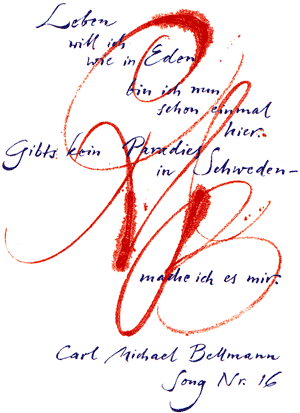 Leben
will ich
wie in Eden
bin ich nun
schon einmal
hier.
Gibts kein Paradies
in Schweden –
mache ich es mir.
Carl Michael Bellmann
Song Nr. 16